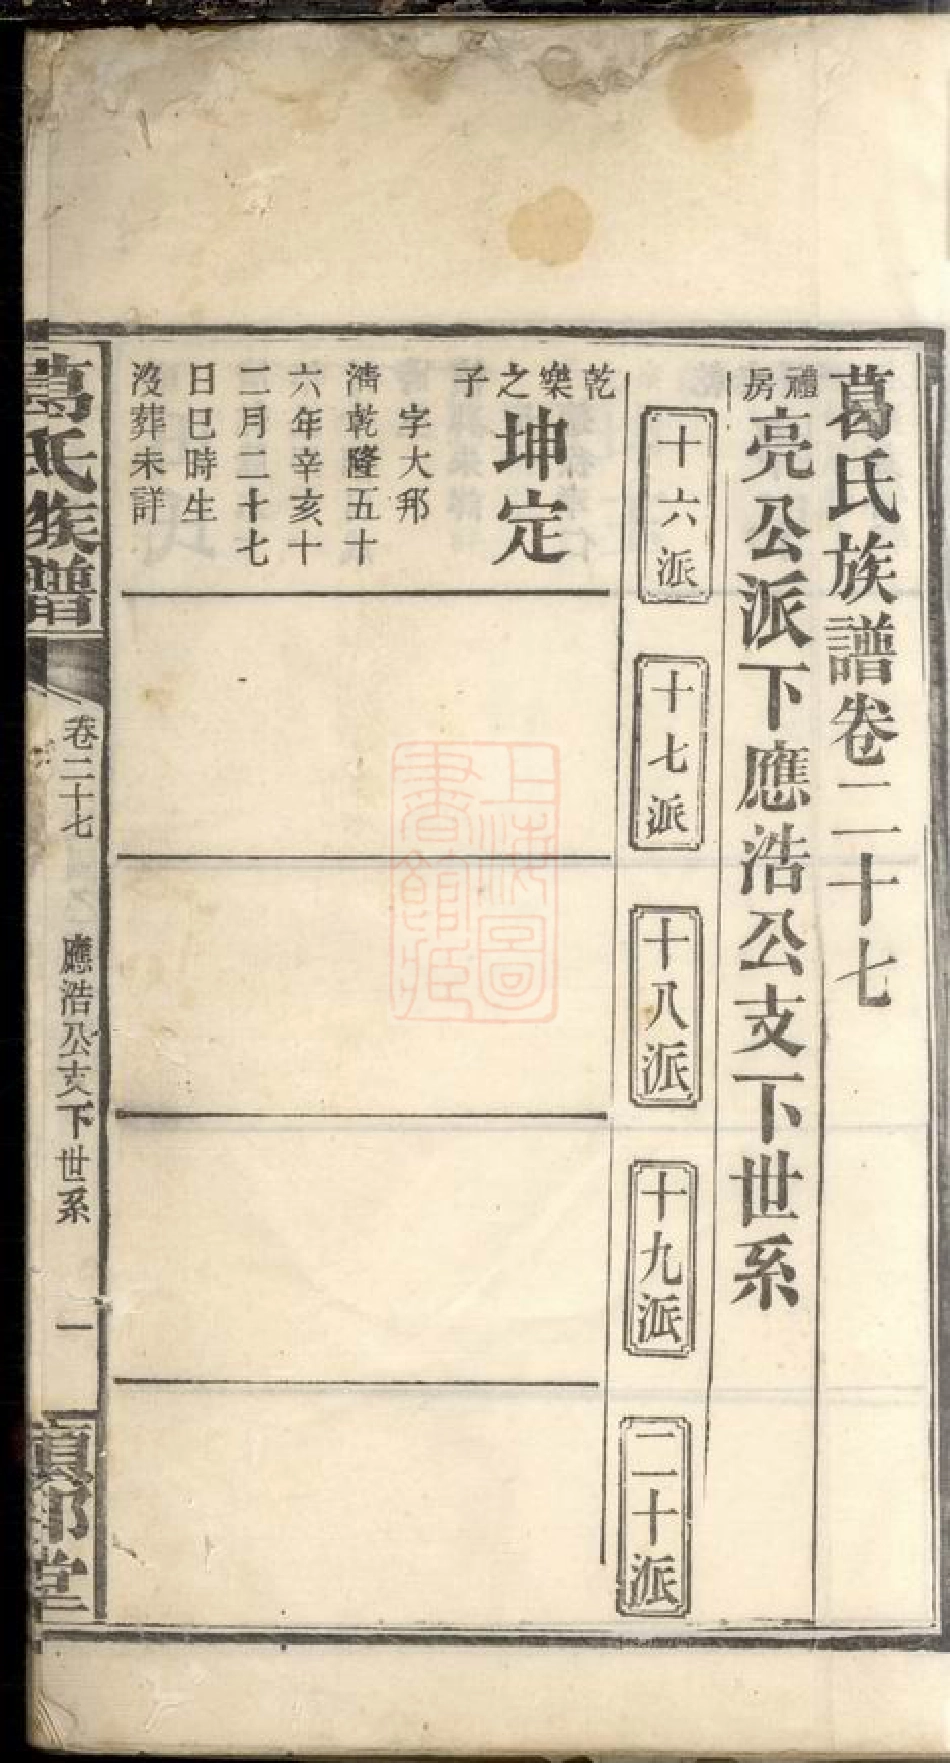 葛氏族譜卷二十七
禮房亮公派下應浩公支下世系
十六派
十七派
十八派
十九派
二十派
乾樂之子
坤定
字大邦
清乾隆五十
六年辛亥十
二月二十七
日巳時生
沒葬未詳
葛氏族譜
卷二十七
應浩公支下世系
一
上海圖書館藏